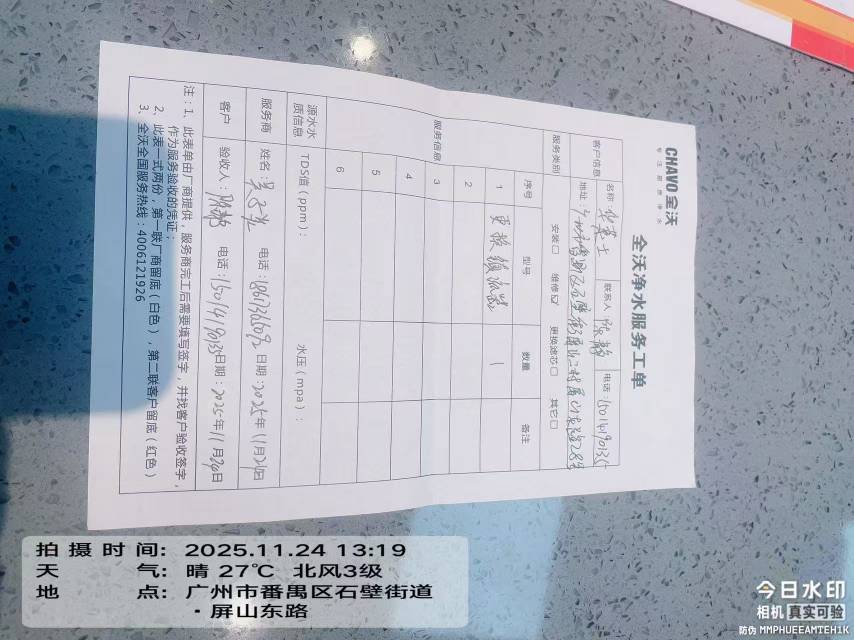 CHAVO全沃
专 注 厨 房 净 水
全沃净水服务工单
客户信息 名称：华莱士 联系人 陈静 电话：15014190135
地址：广州市番禺区石壁街屏山二村屏山东路28号
服务类别 安装□ 维修☑ 更换滤芯□ 其它□
服务信息 序号 型号 数量 备注
1 更换镇流器 1
2
3
4
5
6
源水水质信息 TDS值（ppm）： 水压（mpa）：
服务商 姓名： 电话： 日期：2025年11月24日
客户 验收人：陈静 电话：15014190135 日期：2025年11月24日
注：1、此表单由厂商提供，服务商完工后需要填写签字，并找客户验收签字，
作为服务验收的凭证；
2、此表一式两份，第一联厂商留底（白色），第二联客户留底（红色）
3、全沃全国服务热线：4006121926
拍 摄 时 间： 2025.11.24 13:19
天 气： 晴 27℃ 北风3级
地 点： 广州市番禺区石壁街道
·屏山东路
今日水印
相机 真实可验
防伪 MMPHUEEAMTEH1K